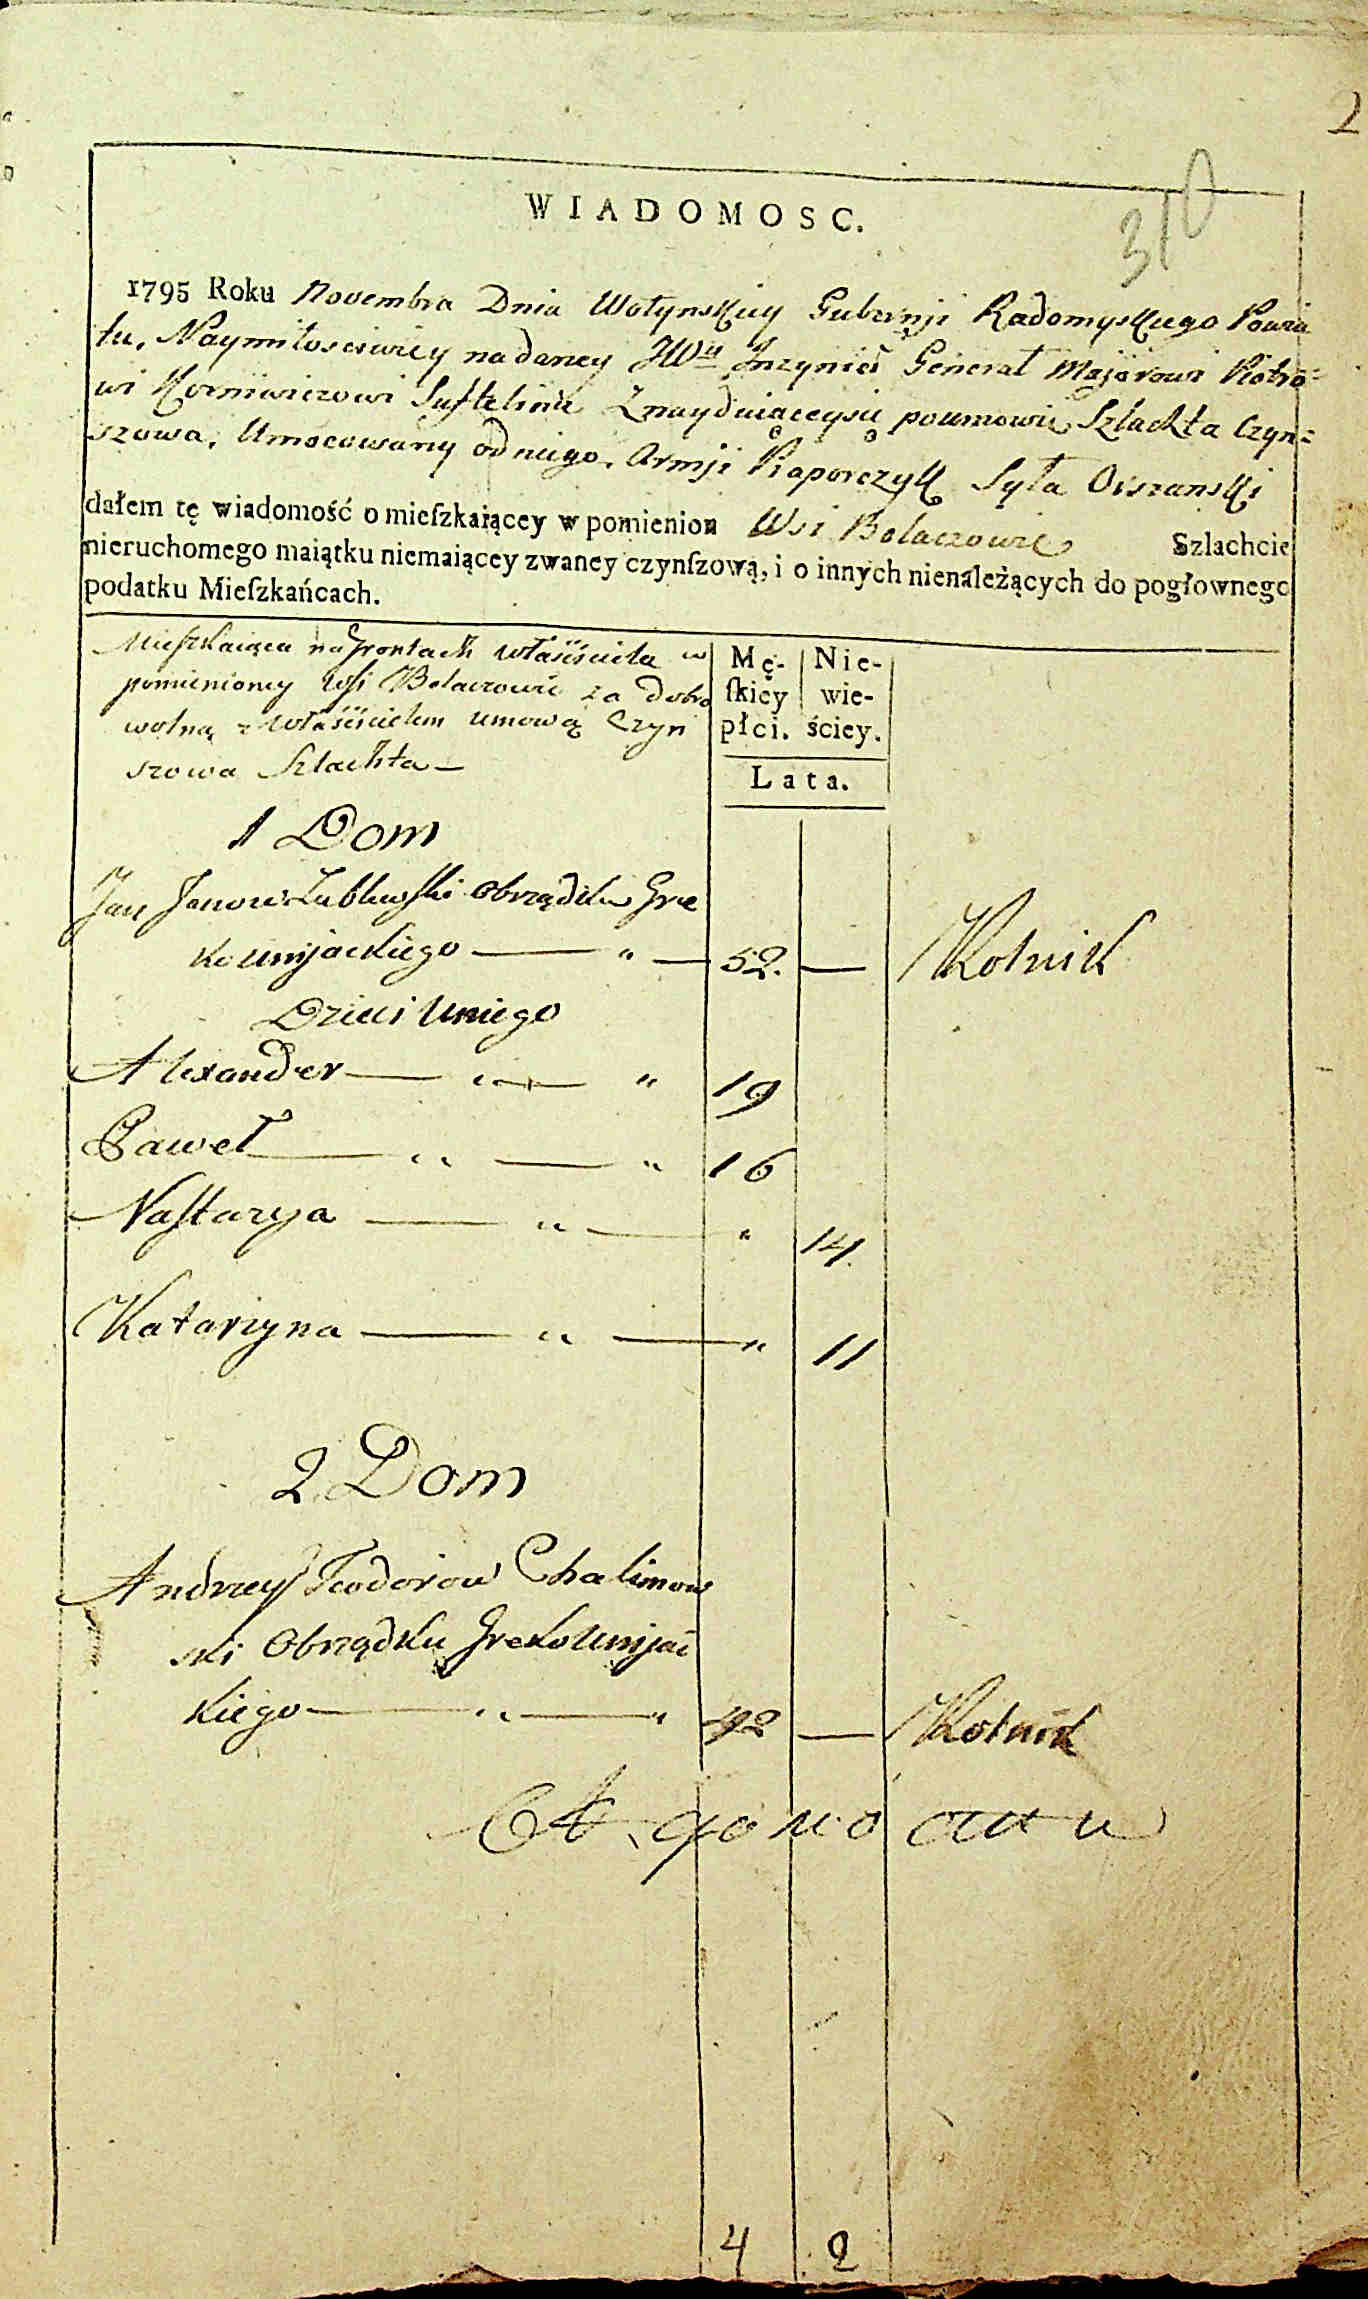 2
310
WIADOMOSC.
1795 Roku Novembra Dnia Wołynskiey Gubernji Radomyskiego Powia
tu, Naymiłosciwiey nadaney JW Inzynier Generał Majorowi Piotro=
wi Korniewiczowi Suchtelinu Znayduiąceysię poumowie Szlachta Czyn=
szowa, Umocowany od niego, Armji Praporczyk Syła Oiszanski
dałem tę wiadomość o mieſzkaiącey w pomienion Wsi Bełaczowie Szlachcie
nieruchomego maiątku niemaiącey zwaney czynſzową, i o innych nienależących do pogłownego
podatku Mieſzkańcach.
Mieſzkaiąca na Grontach właściciela w
pomienioney Wsi Bełaczowie za dobro
wolną z właścicielem umową Czyn
szowa Szlachta —
Mę- Nie-
ſkiey wie-
płci. ściey.
Lata.
1 Dom
Jan Janow Obrządku Gre
ko unijackiego — " — 52. — Rolnik
Dzieci Uniego
Alexander — " — " 19
Paweł — " — " 16
Naſtazya — " — " 14.
Katarzyna — " — " 11
2 Dom
Andrzey Teodorow Chalimow
ski Obrządku Greko Unijac
kiego — " — " 42 — Rolnik
4 2